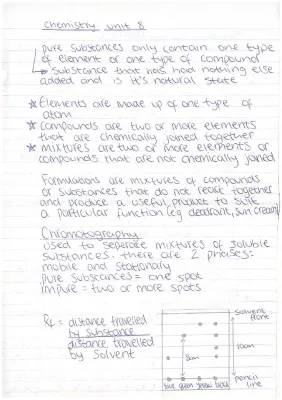 chemistry unit 8
pure substances only contain one type
of element or one type of compound
substance that has had nothing else
added and is it's natural state
★ Elements are made up of one type of
atom
★ compounds are two or more elements
that are chemically joined together
★ mixtures are two or more elements or
compounds that are not chemically joined
Formulations are mixtures of compounds
or substances that do not react together
and produce a useful product to suit
a particular function (eg deodrant, sun cream)
Chromotography
used to seperate mixtures of soluble
substances. there are 2 phases:
mobile and stationary
pure substances = one spot
impure = two or more spots
Rf = distance travelled
by substance
distance travelled
by solvent
solvent
front
10cm
8cm
pencil
line
blue green yellow black